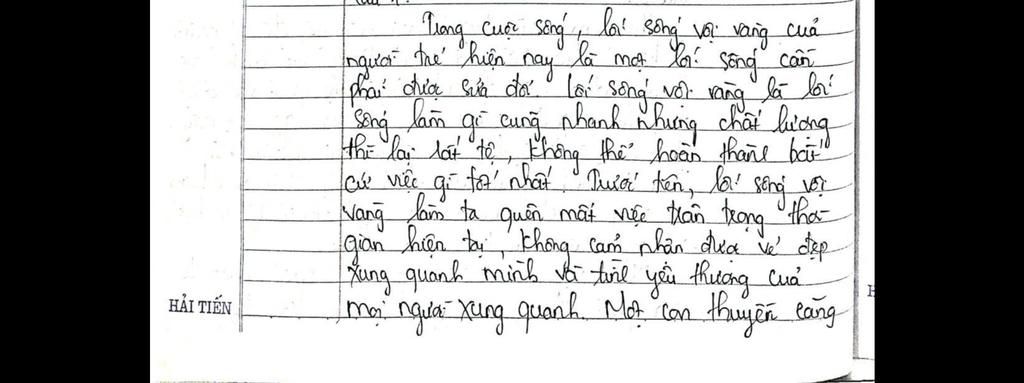 Trong cuộc sống, lối sống vội vàng của
người trẻ hiện nay là một lối sống cần
phải được sửa đổi. Lối sống vội vàng là lối
sống làm gì cũng nhanh nhưng chất lượng
thì lại rất tệ, không thể hoàn thành bất
cứ việc gì tốt nhất. Trước tên, lối sống vội
vàng làm ta quên mất việc trân trọng thời
gian hiện tại, không cảm nhận được vẻ đẹp
xung quanh mình và tình yêu thương của
mọi người xung quanh. Một con thuyền càng
HẢI TIẾN